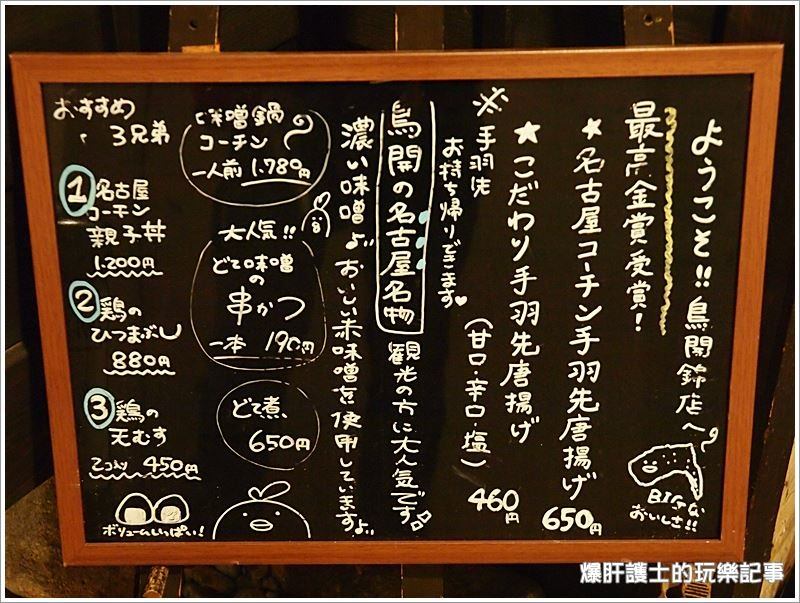 ようこそ!! 鳥開錦店へ
最高金賞受賞!
★名古屋コーチン手羽先唐揚げ
650円
★こだわり手羽先唐揚げ
(甘口・辛口・塩)
460円
※手羽先
お持ち帰りできます♥
BIGな
おいしさ!!
鳥開の名古屋名物
観光の方に大人気です
濃い味噌
おいしい赤味噌を使用しています
味噌鍋
コーチン
一人前 1,780円
大人気!!
どて味噌
の
串かつ
一本 190円
どて煮
650円
おすすめ
3兄弟
① 名古屋
コーチン
親子丼
1,200円
② 鶏の
ひつまぶし
880円
③ 鶏の
天むす
2コ入り 450円
ボリュームいっぱい!
爆肝護士的玩樂記事